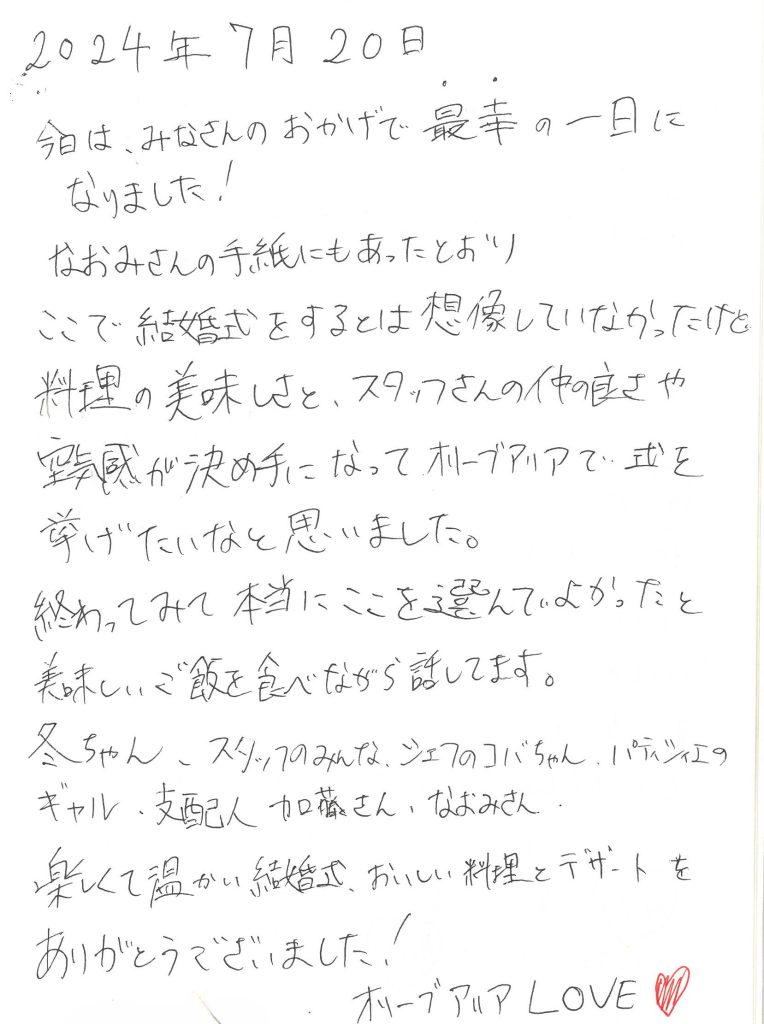 2024年7月20日
今日は、みなさんのおかげで最幸の一日に
なりました!
なおみさんの手紙にもあったとおり
ここで結婚式をするとは想像していなかったけど
料理の美味しさと、スタッフさんの仲の良さや
空気感が決め手になってオリーブアリアで式を
挙げたいなと思いました。
終わってみて本当にここを選んでいよかったと
美味しいご飯を食べながら話してます。
冬ちゃん、スタッフのみんな、シェフのコバちゃん、パティシィエの
ギャル、支配人 加藤さん、なおみさん.
楽しくて温かい結婚式、おいしい料理とデザートを
ありがとうございました!
オリーブアリア LOVE